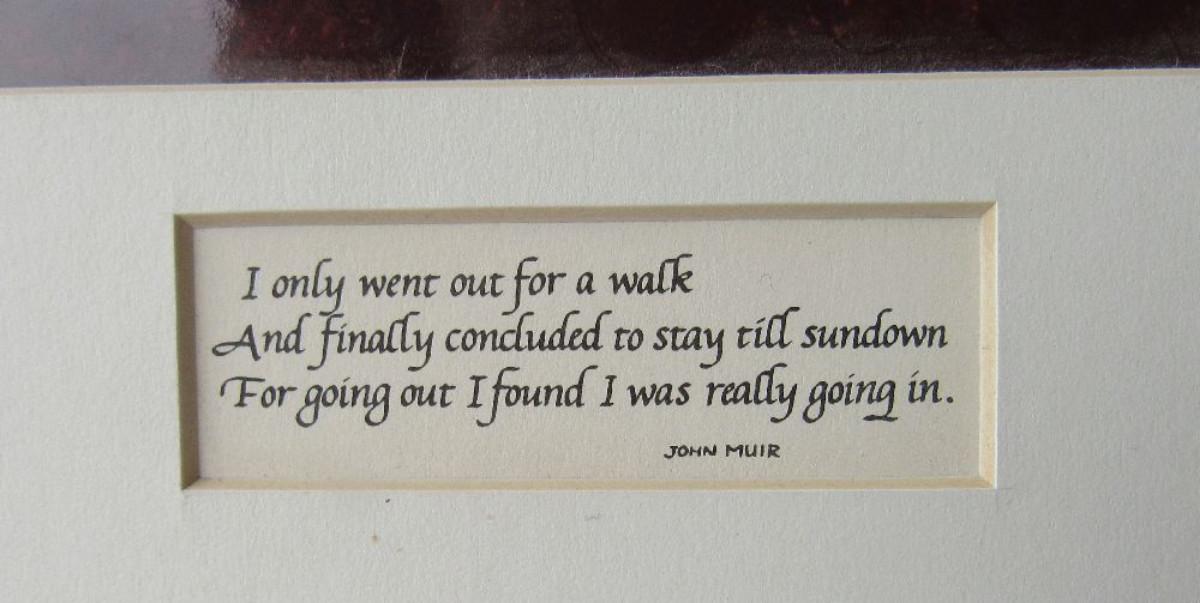 I only went out for a walk
And finally concluded to stay till sundown
For going out I found I was really going in.
JOHN MUIR